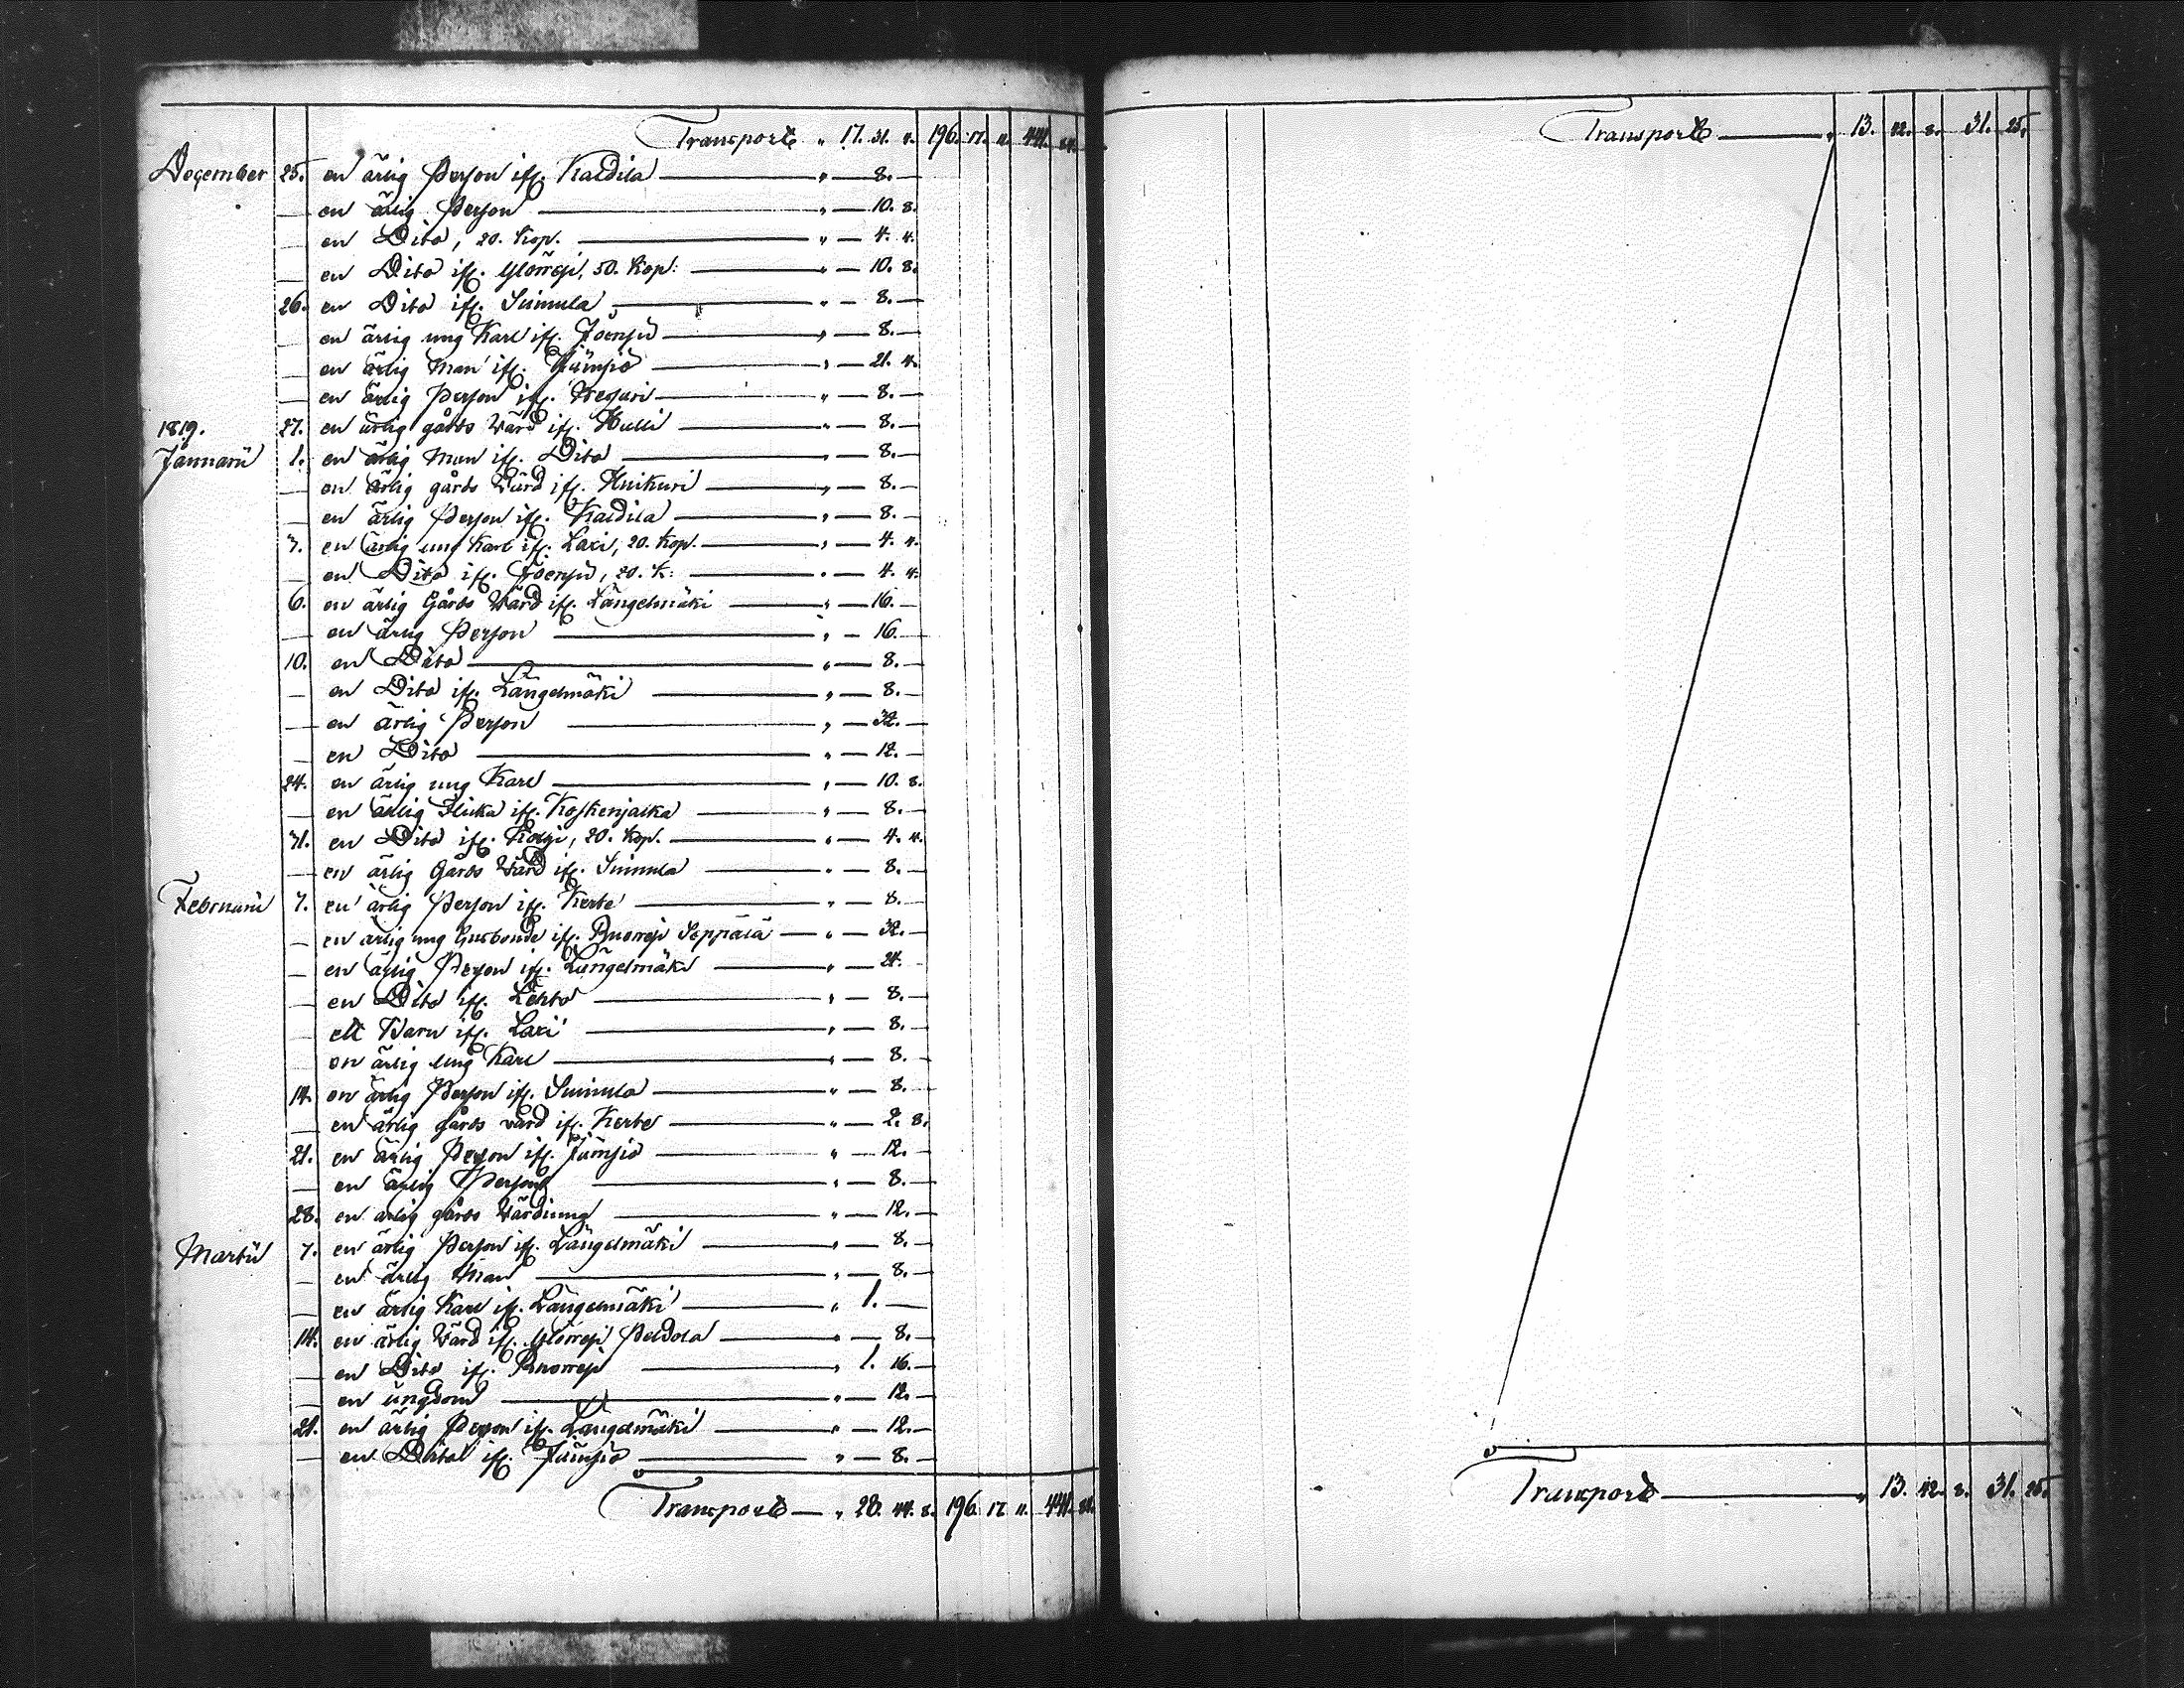 Transporte " 17. 31. 4. 196. 17. 11. 441. 84.
December 25. en ärlig Person ifr. Kaldila " — 8. —
— en ärlig Person " — 10. 8.
— en Dito, 20. Kop. " — 4. 4.
— en Dito ifr. 50. Kop: " — 10. 8.
26. en Dito ifr. Suinula " — 8. —
— en ärlig ung Karl ifr. " — 8. —
— en ärlig Man ifr. Jämsiö " — 21. 4.
— en ärlig Person ifr. " — 8. —
27. en ärlig gårds Värd ifr. Hulli " — 8. —
1819.
Januarii 1. en ärlig Man ifr. Dito " — 8. —
— en ärlig gårds Värd ifr. " — 8. —
— en ärlig Person ifr. Kaldila " — 8. —
3. en ärlig ung Karl ifr. Lari, 20. Kop. " — 4. 4.
— en Dito ifr. 20. K: " — 4. 4.
6. en ärlig Gårds Värd ifr. Längelmäki " — 16. —
— en ärlig Person " — 16. —
10. en Dito " — 8. —
— en Dito ifr. Längelmäki " — 8. —
— en ärlig Person " — 32. —
— en Dito " — 12. —
24. en ärlig ung Karl " — 10. 8.
— en ärlig Flicka ifr. Koskenjalka " — 8. —
31. en Dito ifr. 20. Kop. " — 4. 4.
— en ärlig Gårds Värd ifr. Suinula " — 8. —
Februarii 7. en ärlig Person ifr. Kerte " — 8. —
— en ärlig ung husbonde ifr. Seppälä " — 32. —
— en ärlig Person ifr. Längelmäki " — 24. —
— en Dito ifr. Lehto " — 8. —
— ett Barn ifr. Lari " — 8. —
— en ärlig ung Karl " — 8. —
14. en ärlig Person ifr. Suinula " — 8. —
— en ärlig gårds värd ifr. Kerte " — 2. 8.
21. en ärlig Person ifr. Jämsiö " — 12. —
— en ärlig Person " — 8. —
28. en ärlig gårds Värdinna " — 12. —
Martii 7. en ärlig Person ifr. Längelmäki " — 8. —
— en ärlig Man " — 8. —
— en ärlig Karl ifr. Längelmäki " 1. —
14. en ärlig Värd ifr. Peldola " — 8. —
— en Dito ifr. " 1. 16. —
— en ungdom " — 12. —
21. en ärlig Person ifr. Längelmäki " — 12. —
— en Dito ifr. Jämsiö " — 8. —
Transporte — " 28. 44. 8. 196. 17. 11. 441. 84.
Transporte — " 13. 42. 8. 31. 25.
Transporte — " 13. 42. 8. 31. 25.